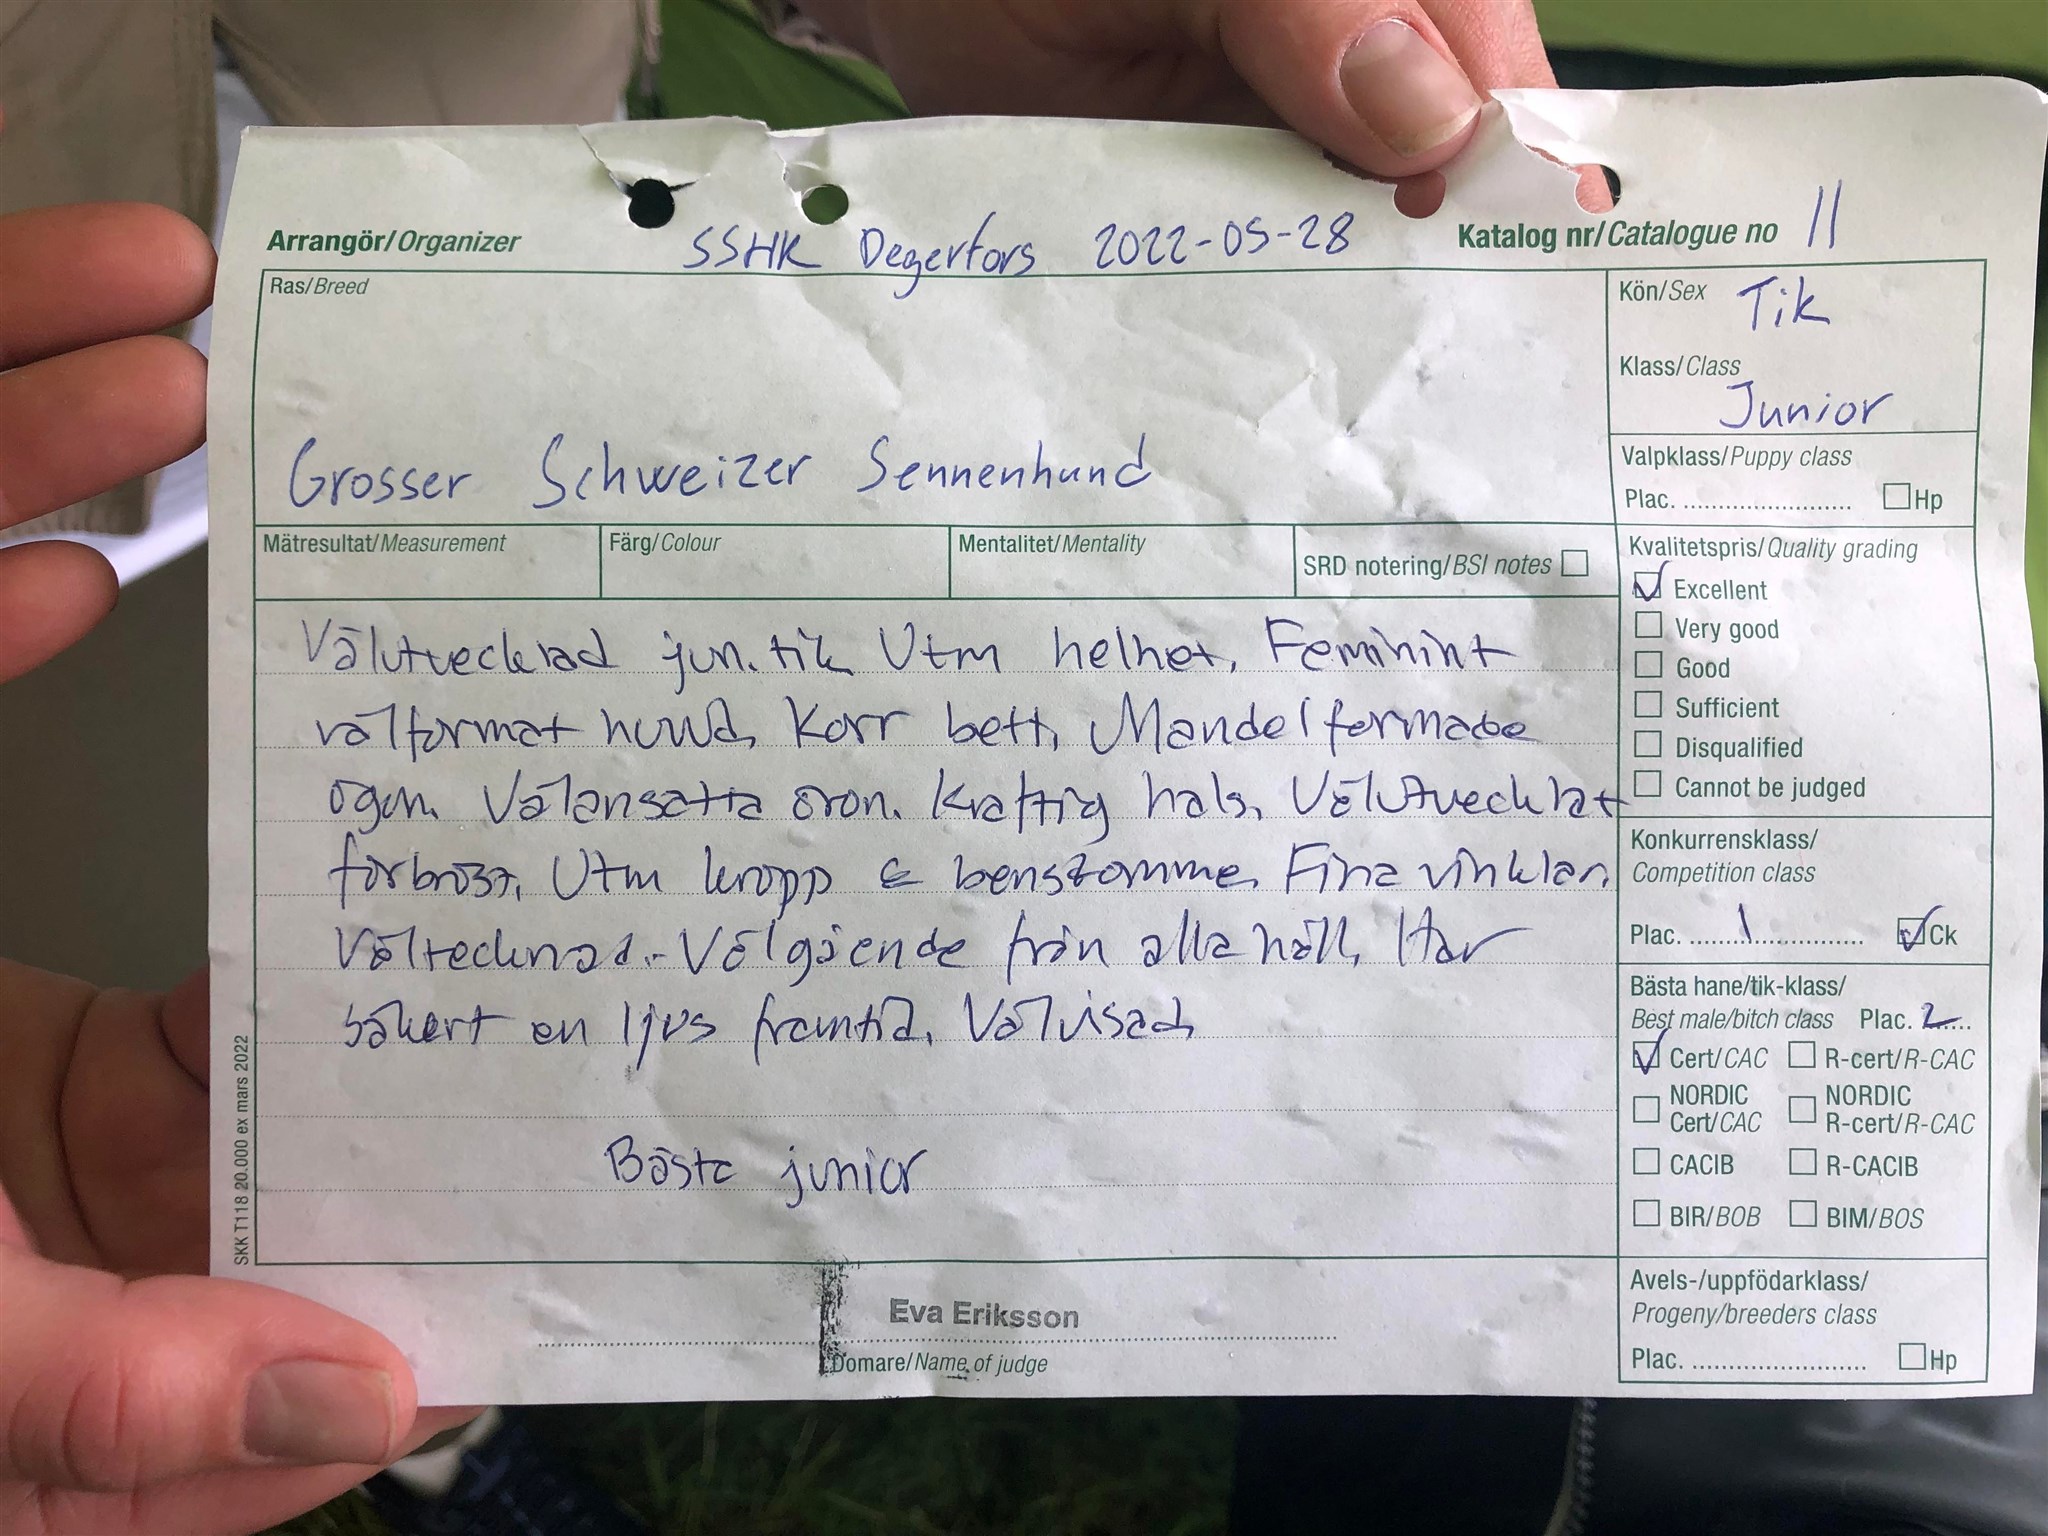 Arrangör/Organizer SSHK Degerfors 2022-05-28 Katalog nr/Catalogue no 11
Ras/Breed
Grosser Schweizer Sennenhund
Kön/Sex Tik
Klass/Class
Junior
Valpklass/Puppy class
Plac. ........................ Hp
Mätresultat/Measurement Färg/Colour Mentalitet/Mentality SRD notering/BSI notes
Kvalitetspris/Quality grading
Excellent
Very good
Good
Sufficient
Disqualified
Cannot be judged
Välutvecklad jun. tik Utm helhet. Feminint
välformat huvud, Korr bett, Mandelformade
ögon. Välansatta öron. Kraftig hals, Välutvecklat
förbröst, Utm kropp & benstomme. Fina vinklar,
Vältecknad.- Välgående från alla håll, Har
säkert en ljus framtid. Välvisad,
Bästa junior
Konkurrensklass/
Competition class
Plac. ........1.............. Ck
Bästa hane/tik-klass/
Best male/bitch class Plac. 2....
Cert/CAC R-cert/R-CAC
NORDIC Cert/CAC NORDIC R-cert/R-CAC
CACIB R-CACIB
BIR/BOB BIM/BOS
Avels-/uppfödarklass/
Progeny/breeders class
Plac. ......................... Hp
Eva Eriksson
Domare/Name of judge
SKK T118 20.000 ex mars 2022